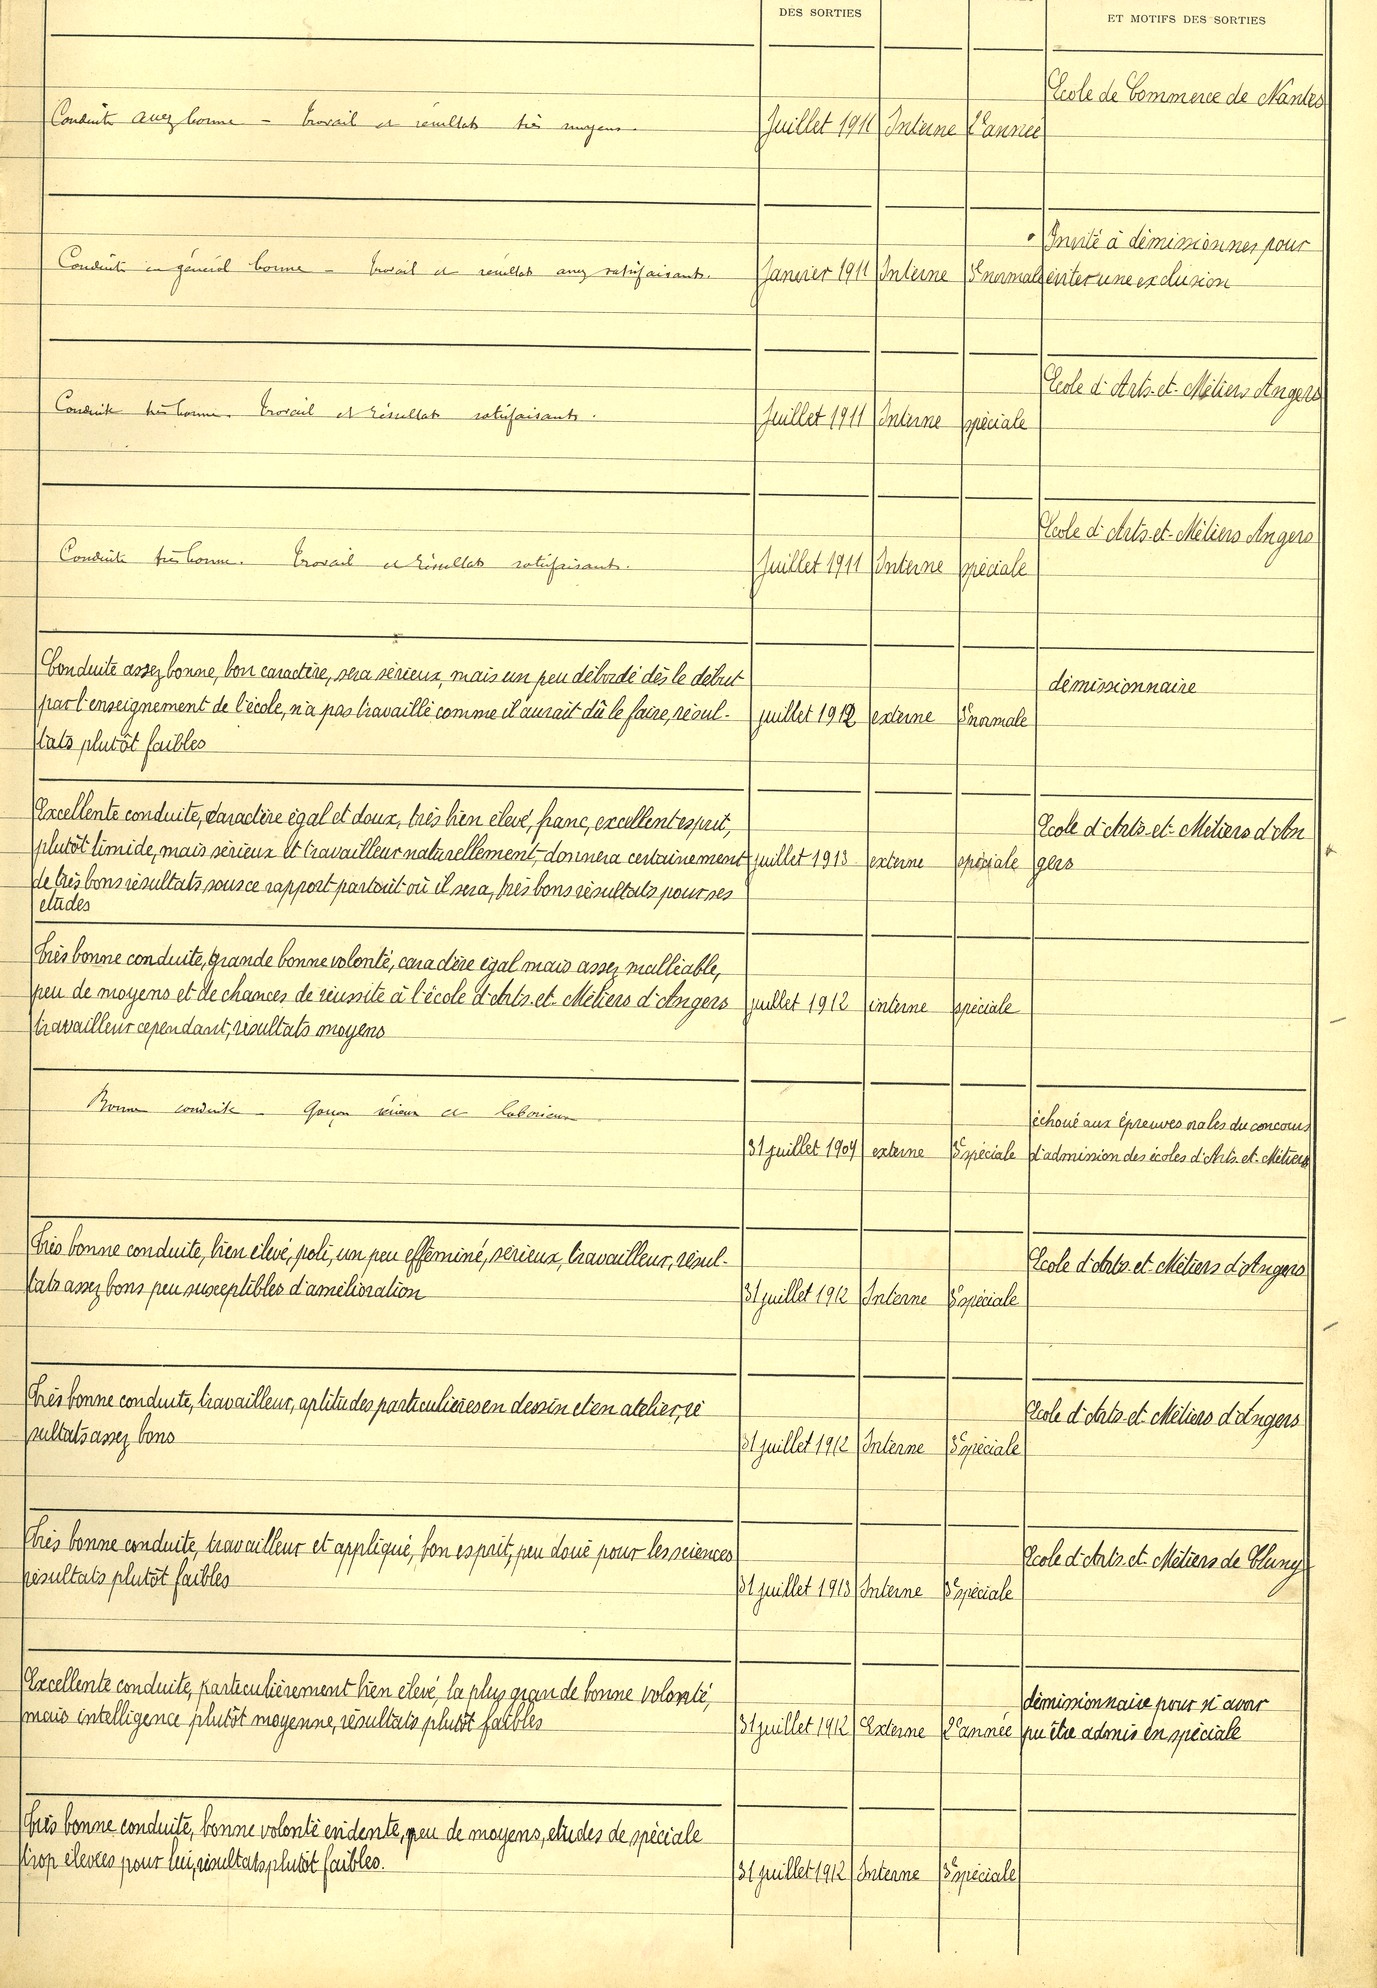 DES SORTIES
ET MOTIFS DES SORTIES
Conduite assez bonne – Travail et résultats très moyens.
Juillet 1911 Interne 2e année
Ecole de Commerce de Nantes
Conduite en général bonne – Travail et résultats assez satisfaisants.
Janvier 1911 Interne 3e normale
Invité à démissionner pour
eviter une exclusion
Conduite très bonne. Travail et résultats satisfaisants.
Juillet 1911 Interne spéciale
Ecole d'Arts-et-Métiers Angers
Conduite très bonne. Travail et résultats satisfaisants.
Juillet 1911 Interne spéciale
Ecole d'Arts-et-Métiers Angers
Conduite assez bonne, bon caractère, sera sérieux, mais un peu débordé dès le début
par l'enseignement de l'école, n'a pas travaillé comme il aurait dû le faire, résul-
tats plutôt faibles
juillet 1912 externe 3e normale
démissionnaire
Excellente conduite, caractère égal et doux, très bien élevé, franc, excellent esprit,
plutôt timide, mais sérieux et travailleur naturellement, donnera certainement
de très bons résultats sous ce rapport partout où il sera, très bons résultats pour ses
etudes
juillet 1913 externe spéciale
Ecole d'Arts-et-Métiers d'An
gers
Très bonne conduite, grande bonne volonté, caractère égal mais assez malléable,
peu de moyens et de chances de réussite à l'école d'Arts-et-Métiers d'Angers
travailleur cependant, résultats moyens
juillet 1912 interne spéciale
Bonne conduite – Garçon sérieux et laborieux
31 juillet 1904 externe 3e spéciale
échoué aux épreuves orales du concours
d'admission des écoles d'Arts-et-Métiers
Très bonne conduite, bien élevé, poli, un peu efféminé, sérieux, travailleur, résul-
tats assez bons peu susceptibles d'amélioration
31 juillet 1912 Interne 3e spéciale
Ecole d'Arts-et-Métiers d'Angers
Très bonne conduite, travailleur, aptitudes particulières en dessin et en atelier, ré
sultats assez bons
31 juillet 1912 Interne 3e spéciale
Ecole d'Arts-et-Métiers d'Angers
Très bonne conduite, travailleur et appliqué, bon esprit, peu doué pour les sciences
résultats plutôt faibles
31 juillet 1913 Interne 3e spéciale
Ecole d'Arts-et-Métiers de Cluny
Excellente conduite, particulièrement bien élevé, la plus grande bonne volonté,
mais intelligence plutôt moyenne, résultats plutôt faibles
31 juillet 1912 Externe 2e année
démissionnaire pour n'avoir
pu être admis en spéciale
Très bonne conduite, bonne volonté evidente, peu de moyens, etudes de spéciale
trop élevées pour lui, résultats plutôt faibles.
31 juillet 1912 Interne 3e spéciale